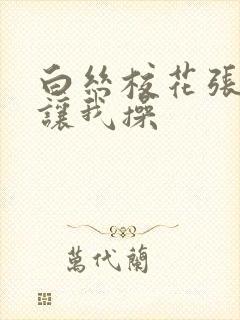 白絲校花張
讓我操
萬代蘭